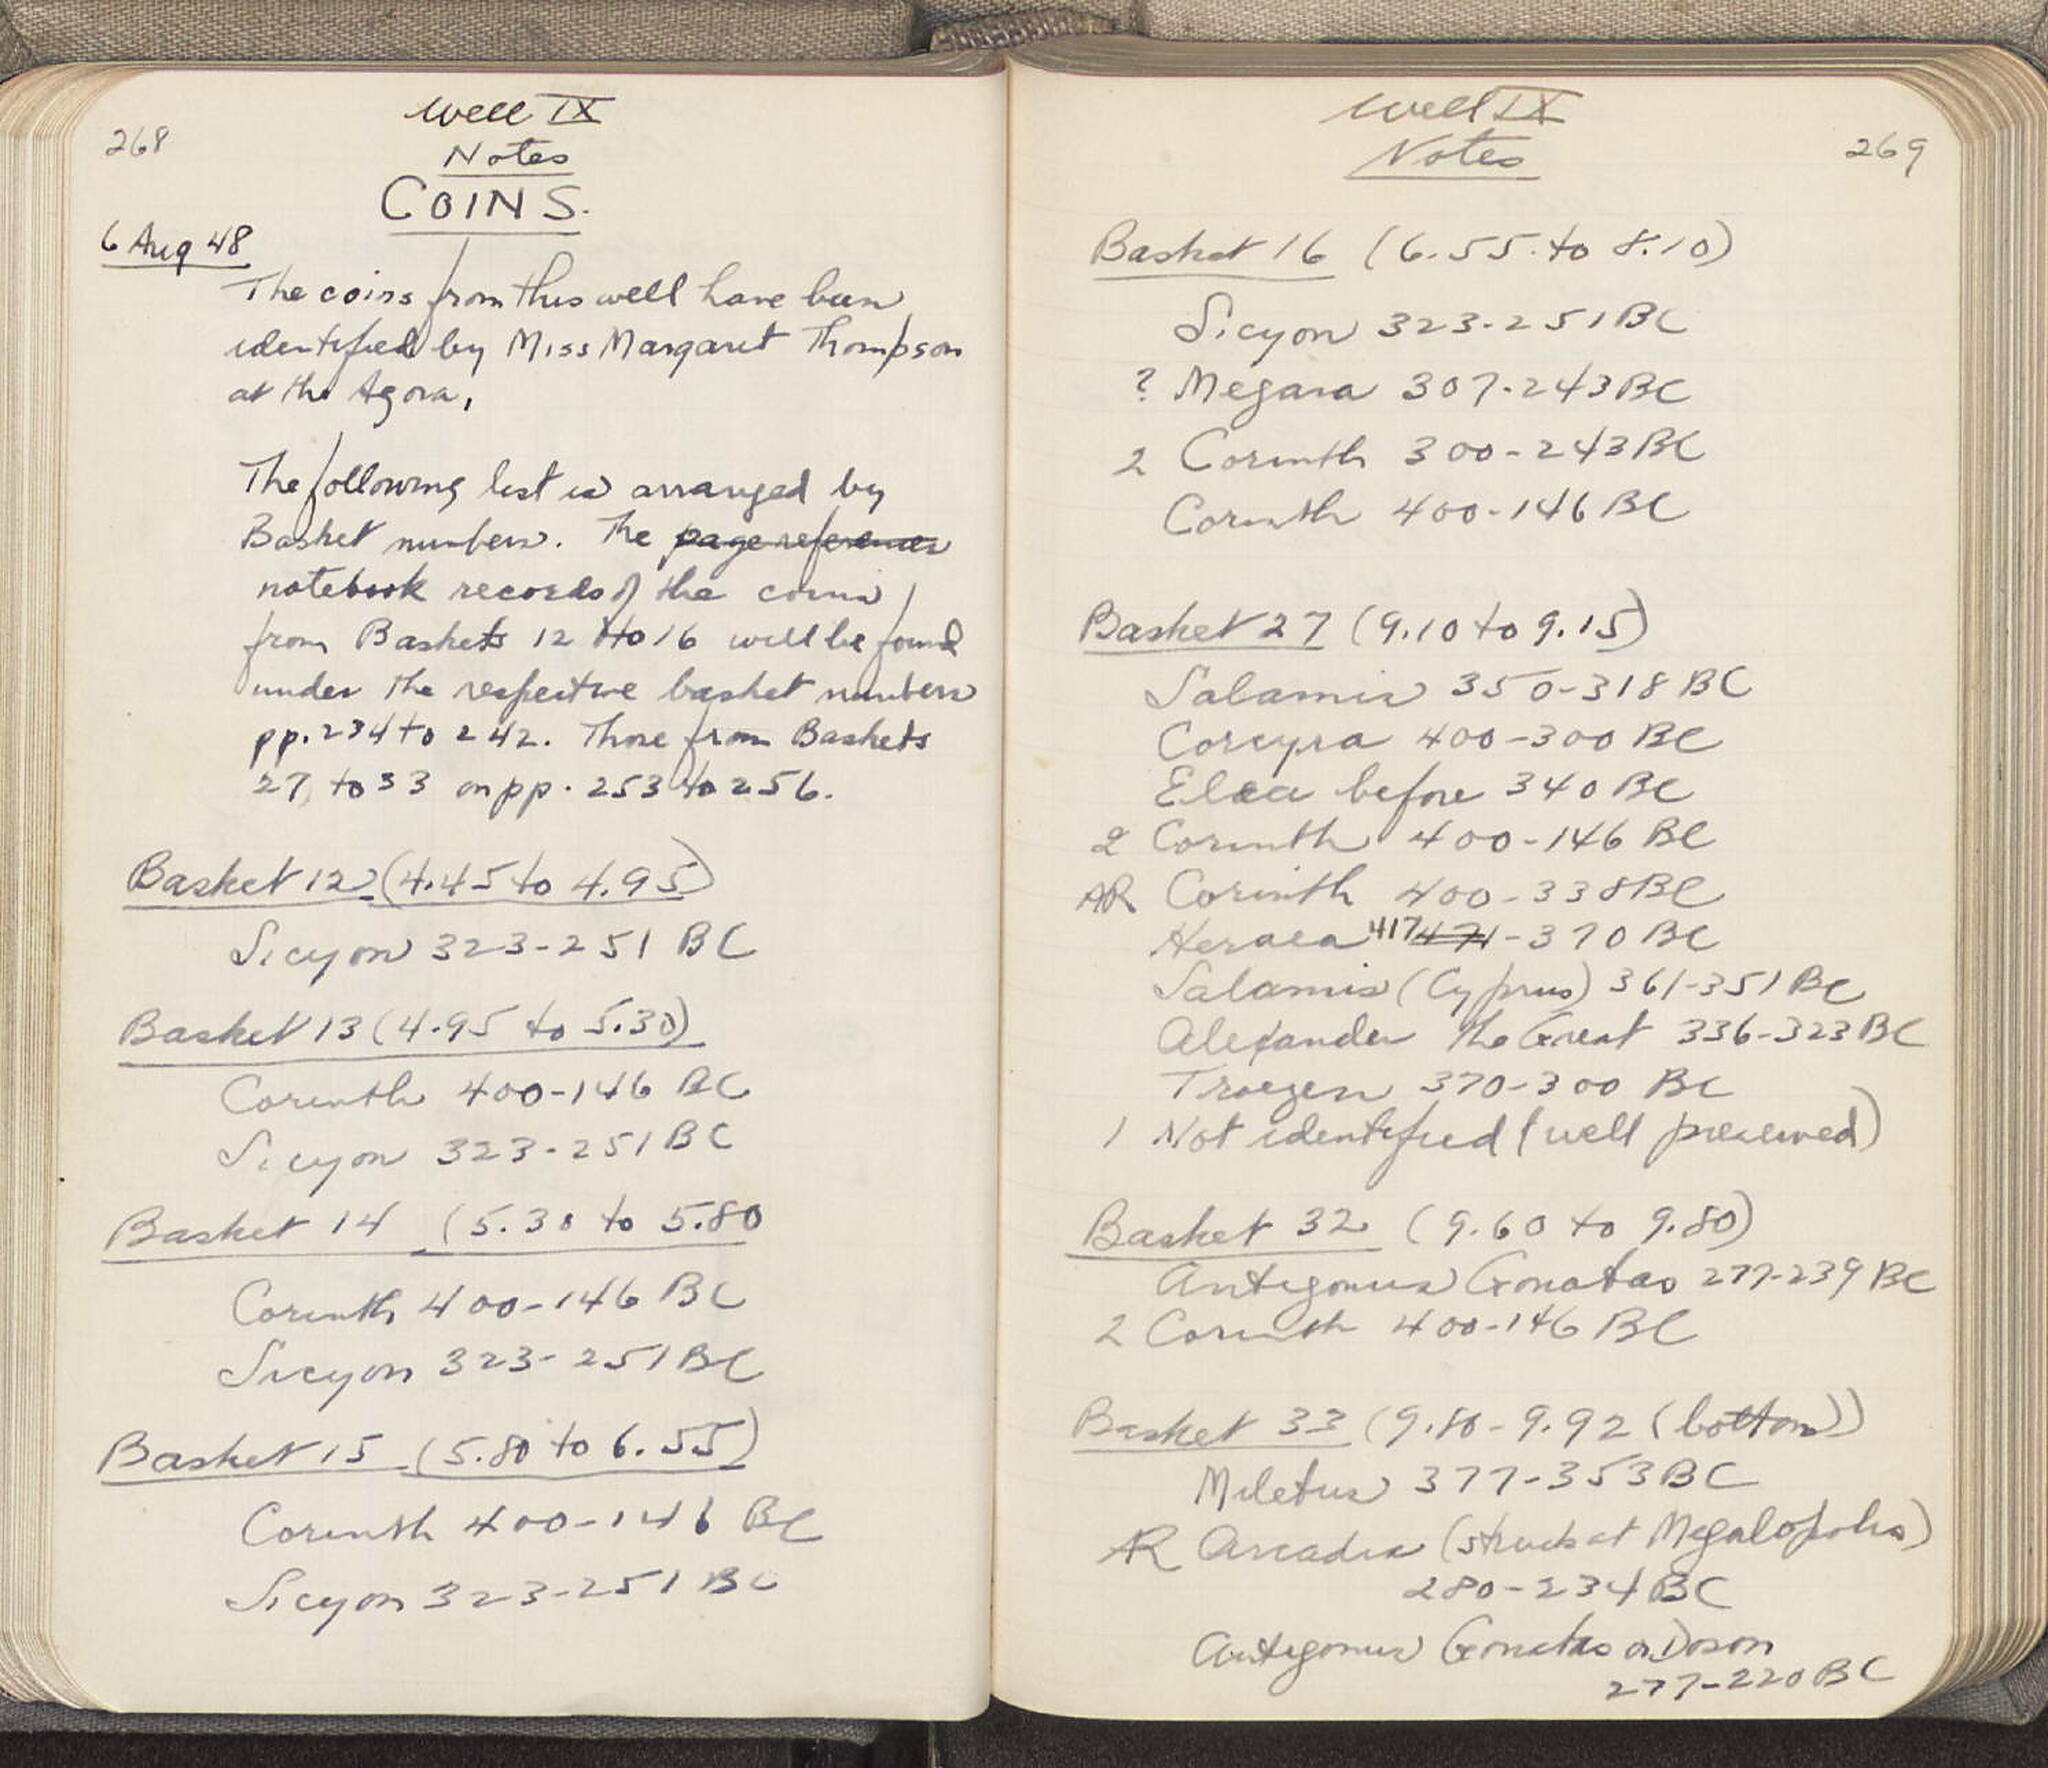 268
Well IX
Notes
COINS.
6 Aug 48
The coins from this well have been
identified by Miss Margaret Thompson
at the Agora.
The following list is arranged by
Basket numbers. The page references
notebook records of the coins
from Baskets 12 to 16 will be found
under the respective basket numbers
pp. 234 to 242. Those from Baskets
27 to 33 on pp. 253 to 256.
Basket 12 (4.45 to 4.95)
Sicyon 323-251 BC
Basket 13 (4.95 to 5.30)
Corinth 400-146 BC
Sicyon 323-251 BC
Basket 14 (5.30 to 5.80
Corinth 400-146 BC
Sicyon 323-251 BC
Basket 15 (5.80 to 6.55)
Corinth 400-146 BC
Sicyon 323-251 BC
Well IX
Notes
269
Basket 16 (6.55 to 8.10)
Sicyon 323-251 BC
? Megara 307-243 BC
2 Corinth 300-243 BC
Corinth 400-146 BC
Basket 27 (9.10 to 9.15)
Salamis 350-318 BC
Corcyra 400-300 BC
Elaea before 340 BC
2 Corinth 400-146 BC
AR Corinth 400-338 BC
Heraea 417 471-370 BC
Salamis (Cyprus) 361-351 BC
Alexander the Great 336-323 BC
Troezen 370-300 BC
1 Not identified (well preserved)
Basket 32 (9.60 to 9.80)
Antigonus Gonatas 277-239 BC
2 Corinth 400-146 BC
Basket 33 (9.80-9.92 (bottom))
Miletus 377-353 BC
AR Arcadia (struck at Megalopolis)
280-234 BC
Antigonus Gonatas or Doson
277-220 BC